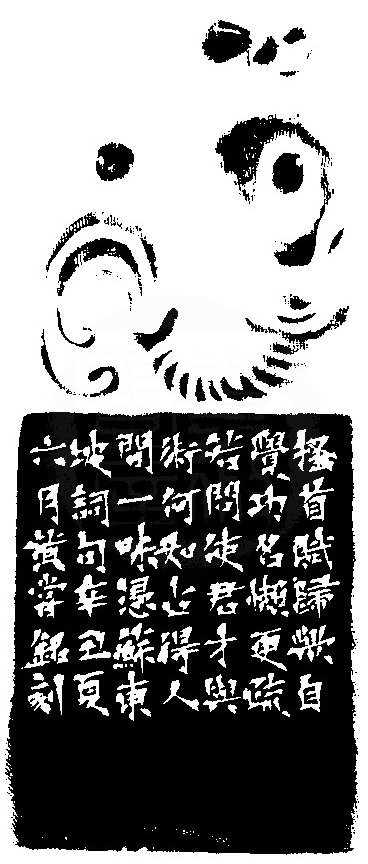 搔首賦歸歟自
覺功名懶更疏
若問使君才與
術何如占得人
間一味愚蘇東
坡詞句辛丑夏
六月黃嘗銘刻